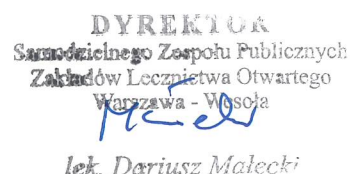 DYREKTOR
Samodzielnego Zespołu Publicznych
Zakładów Lecznictwa Otwartego
Warszawa - Wesoła
lek. Dariusz Małecki